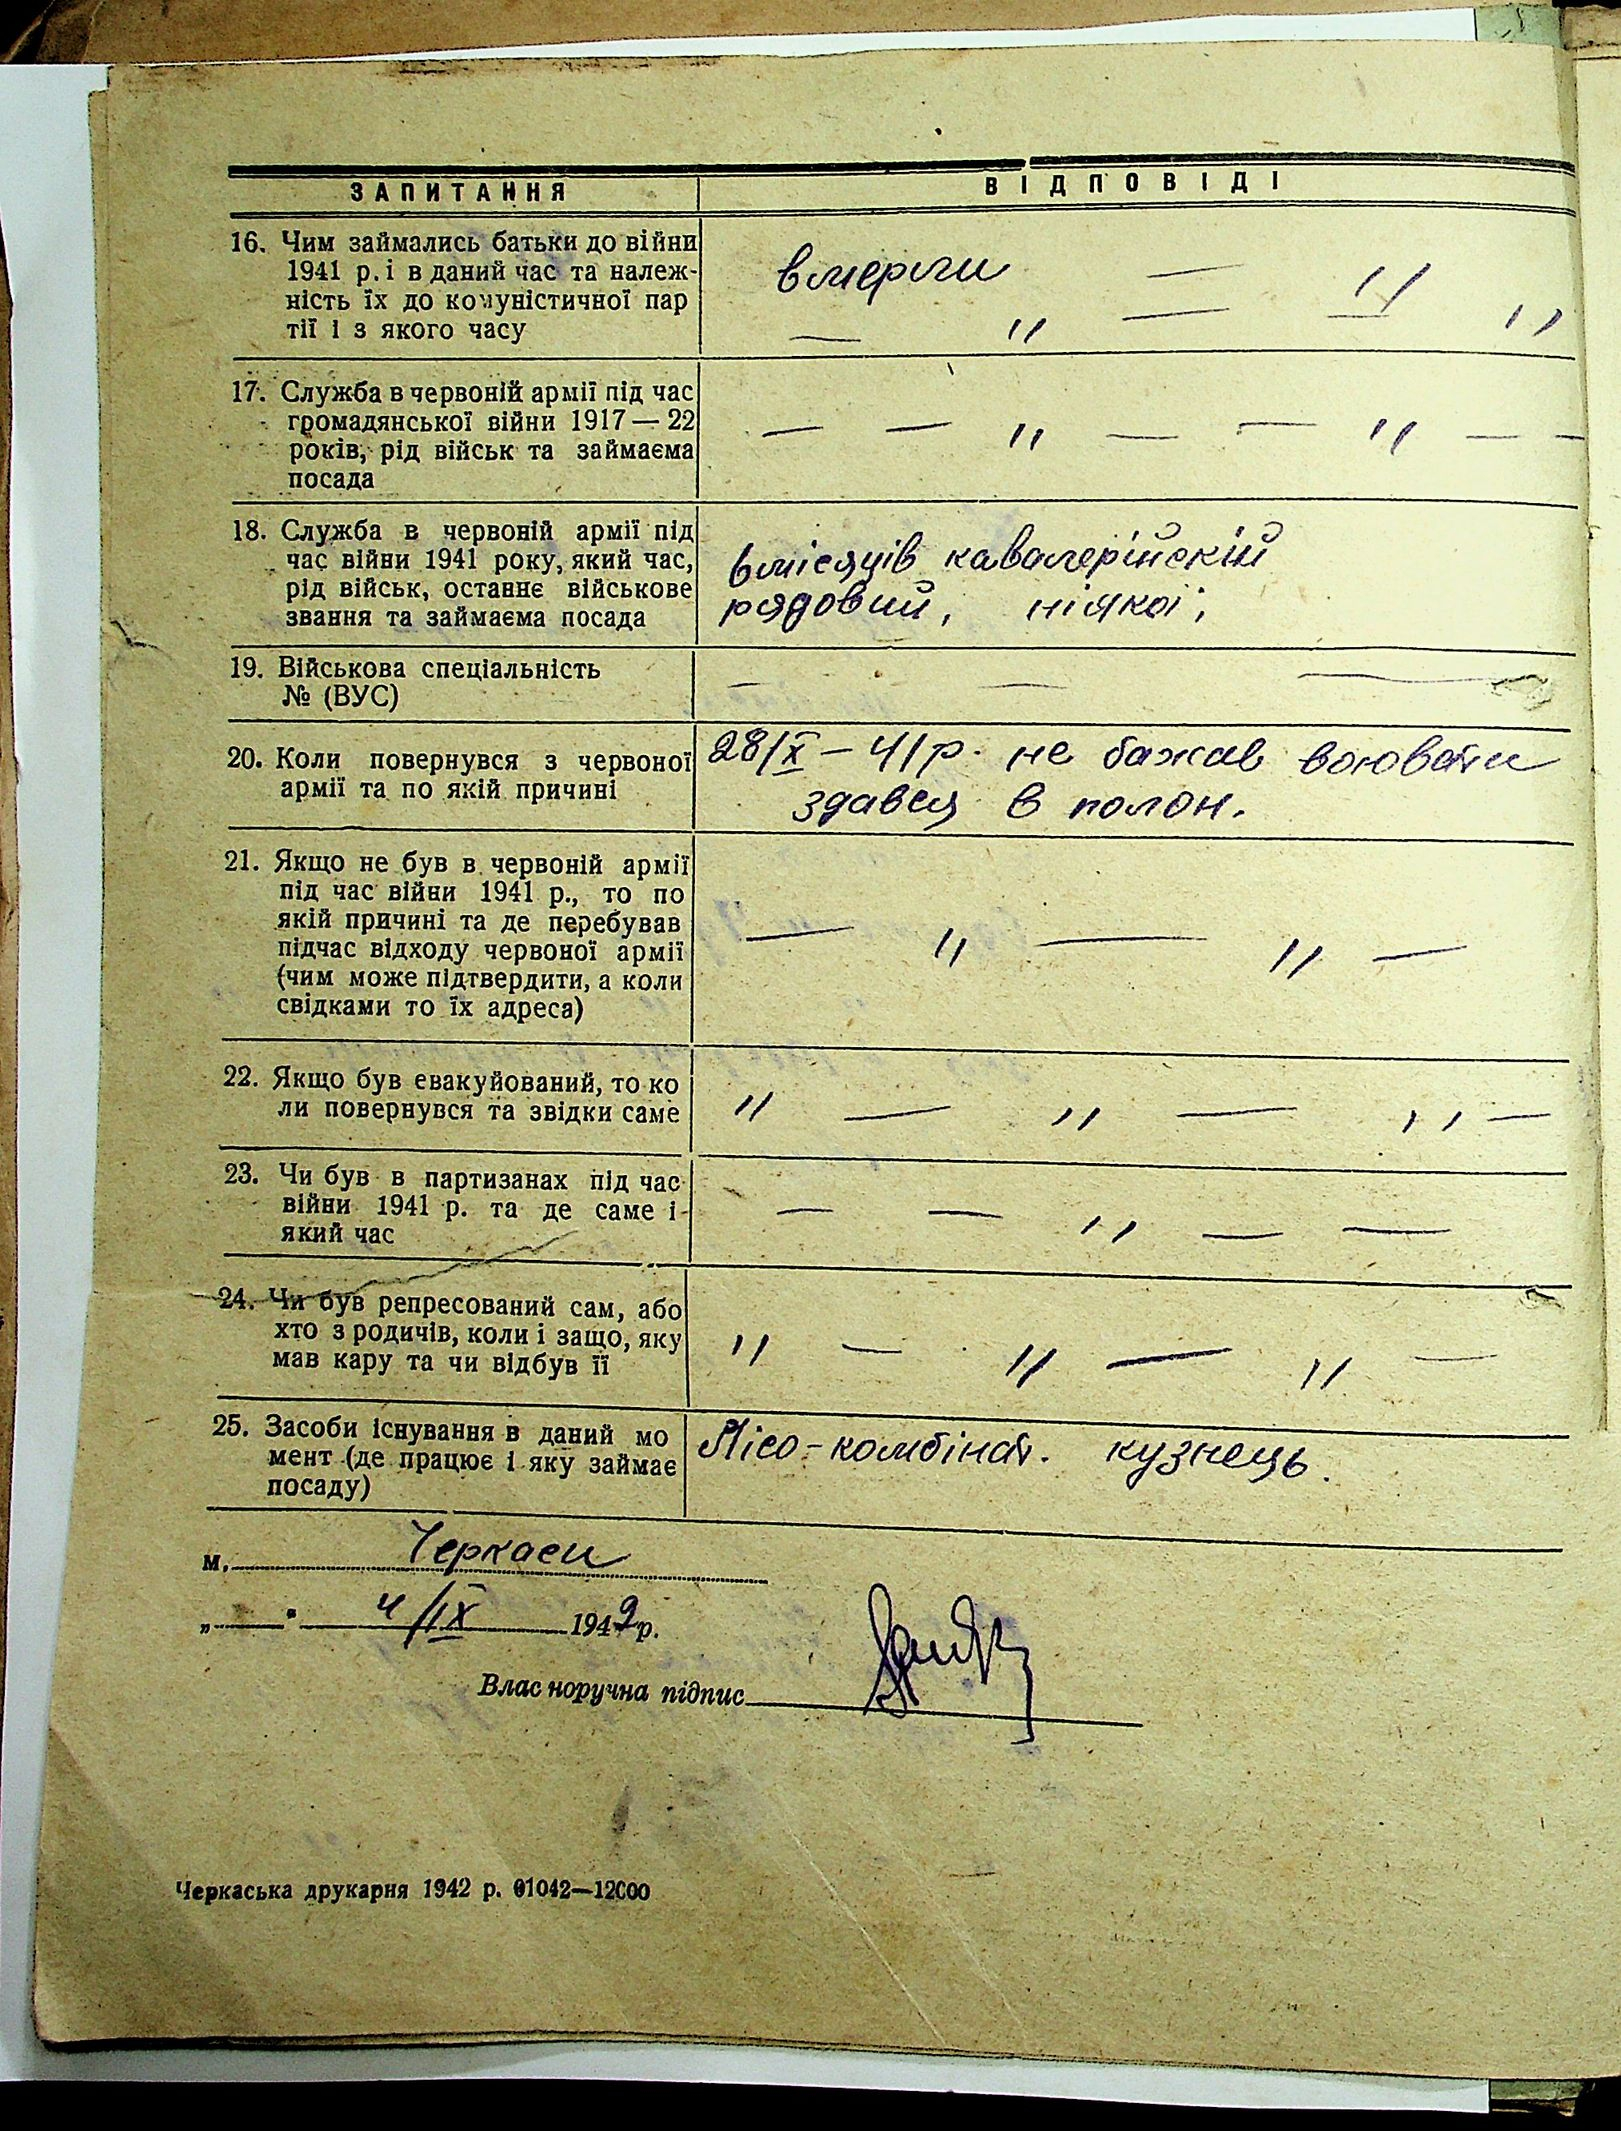 ЗАПИТАННЯ ВІДПОВІДІ
16. Чим займались батьки до війни
1941 р. і в даний час та належ-
ність їх до комуністичної пар
тії і з якого часу
вмерли — "
— " — — "
17. Служба в червоній армії під час
громадянської війни 1917 — 22
років, рід військ та займаєма
посада
— — " — — " — —
18. Служба в червоній армії під
час війни 1941 року, який час,
рід військ, останнє військове
звання та займаєма посада
6 місяців кавалерійскій
рядовий, ніякої;
19. Військова спеціальність
№ (ВУС)
— — —
20. Коли повернувся з червоної
армії та по якій причині
28/X – 41 р. не бажав воювати
здався в полон.
21. Якщо не був в червоній армії
під час війни 1941 р., то по
якій причині та де перебував
підчас відходу червоної армії
(чим може підтвердити, а коли
свідками то їх адреса)
— " — " —
22. Якщо був евакуйований, то ко
ли повернувся та звідки саме
" — " — " —
23. Чи був в партизанах під час
війни 1941 р. та де саме і
який час
— — " — —
24. Чи був репресований сам, або
хто з родичів, коли і защо, яку
мав кару та чи відбув її
" — " — " —
25. Засоби існування в даний мо
мент (де працює і яку займає
посаду)
Лісо-комбінат. кузнець.
м. Черкаси
„ " 4/IX 1942 р.
Влас норучна підпис
Черкаська друкарня 1942 р. 01042—12000